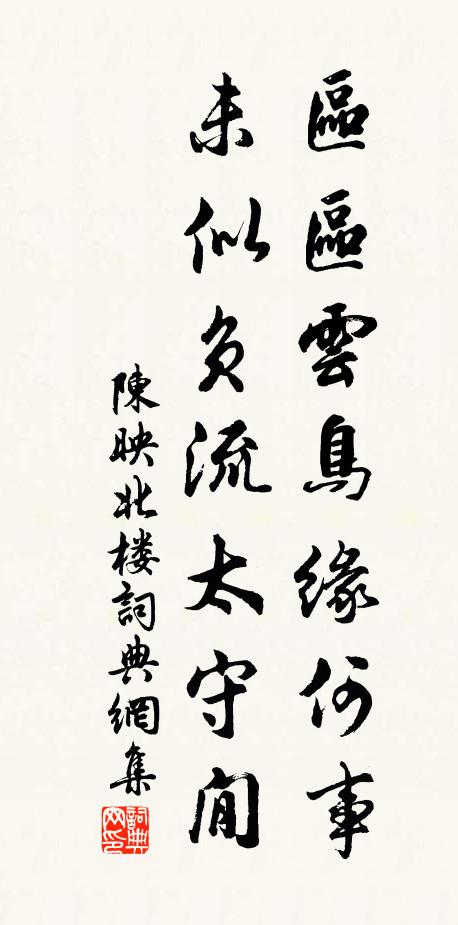 區區雲鳥緣何事
未似負流太守閒
陳映北楼詞典網集
詞典网印